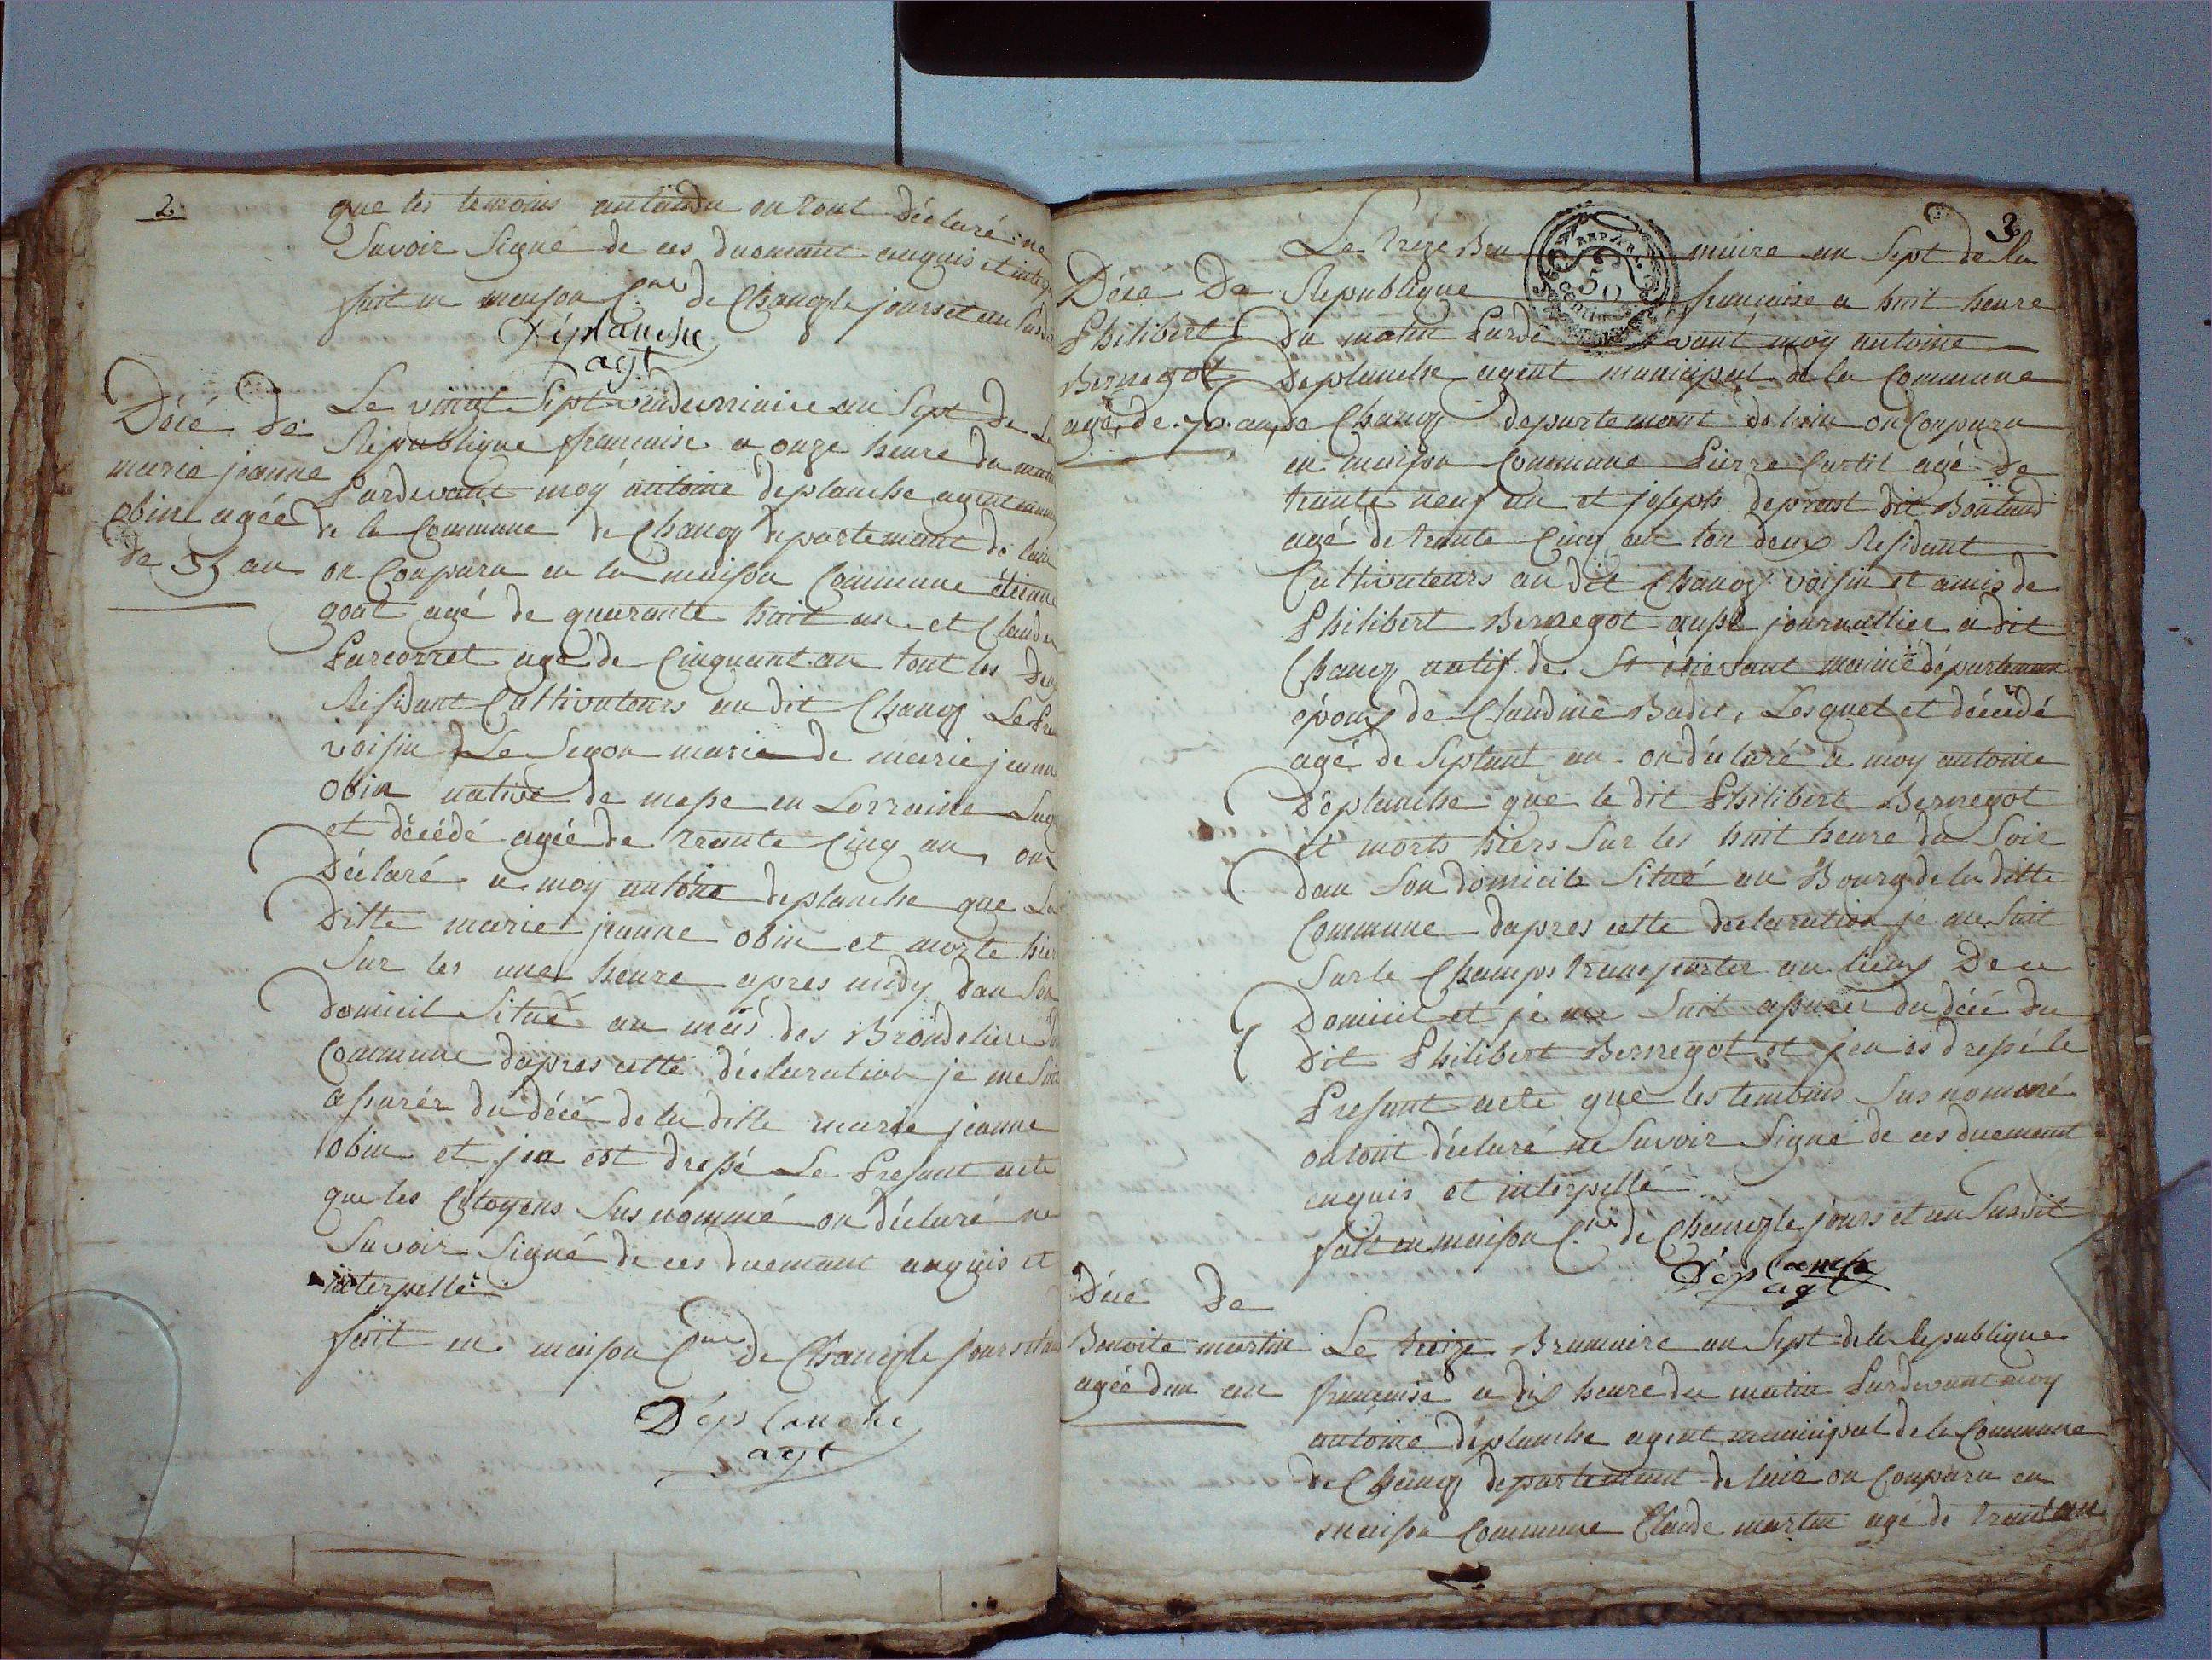 2
que les temoins antandu on tout Déclaré ne
Savoir Signé de ces duomant anquis et interp
fait en meuson C.ne de Chanoz le jours et an Susdi
Déplanche
agt
Décé De
marie jeanne
obin agéé
de 35 an
Le vingt Sept vendemiaire an Sept De La
République francaise a onze heure du matin
Pardevant moy antoine déplanche agent muni
de la Commune de Chanoz departemant de lain
on Conparu en la maison Commune étienne
gout agé de quarante huit an et Claude
Parcorret agé de Cinquant an tout les Deux
Residant Cultivateurs au dit Chanoz Le Pre
voisin Le Segon marie de marie jeanne
Obin native de messe en Lorraine Laq
et décédé agéé de trante Cinq an, on
Déclaré a moy antoine deplanche que La
Ditte marie jeanne obin et morte hier
Sur les une heure apres midy dan Son
domicil Situé au mas des Brondeliere
Commune dapres cette déclaration je me Suit
assurér du décé de la ditte marie jeanne
obin et jen est dressé Le Presant acte
que les Citoyens Sus nommé on déclaré ne
Savoir Signé de ces duemant anquis et
interpellé
fait en maison C.ne de Chanoz le jours et an
Déplanche
agt
3
Le treze Bru maire an Sept de la
République francaise a huit heure
du matin Parde vant moy antoine
Déplanche agent municipal de la Commune
de Chanoz departemant de lain on Conparu
REP. FR.
50
CENTIM
Décé De
Philibert
Bernegot
agé de 70 an
en maison Commune Pierre Curtil agé de
trante neuf an et joseph deprast dit Boutaud
agé de trante Cinq an ton deux Residant
Cultivateurs au dit Chanoz voisin et amis de
Philibert Bernegot aussi journallier a dit
Chanoz natif de St marine département
époux de Claudine Badet, Lesquel et décédé
agé de Septant an on déclaré a moy antoine
Déplanche que le dit Philibert Bernegot
et morts hiers Sur les huit heure du Soir
dan Son domicile Situé au Bourg de la ditte
Commune dapres cette declaration je me Suit
Surle Champs transporter au lieux De ce
Domicil et jé me Suit assurer du décé du
Dit Philibert Bernegot et jen és dressé le
Presant acte que les temoins Sus nommé
on tout déclaré ne Savoir Signé de ces duemant
enquis et interpellé
fait en maison C.ne de Chanoz le jours et an Susdit
Déplanche
agt
Décé De
Benoite martin
agéé dun an
Le treize Brumaire an Sept de la République
française a dix heure du matin Pardevant moy
antoine déplanche agent municipal de la Commune
de Chanoz departemant de lain on Conparu en
maison Commune Claude martin agé de trant an